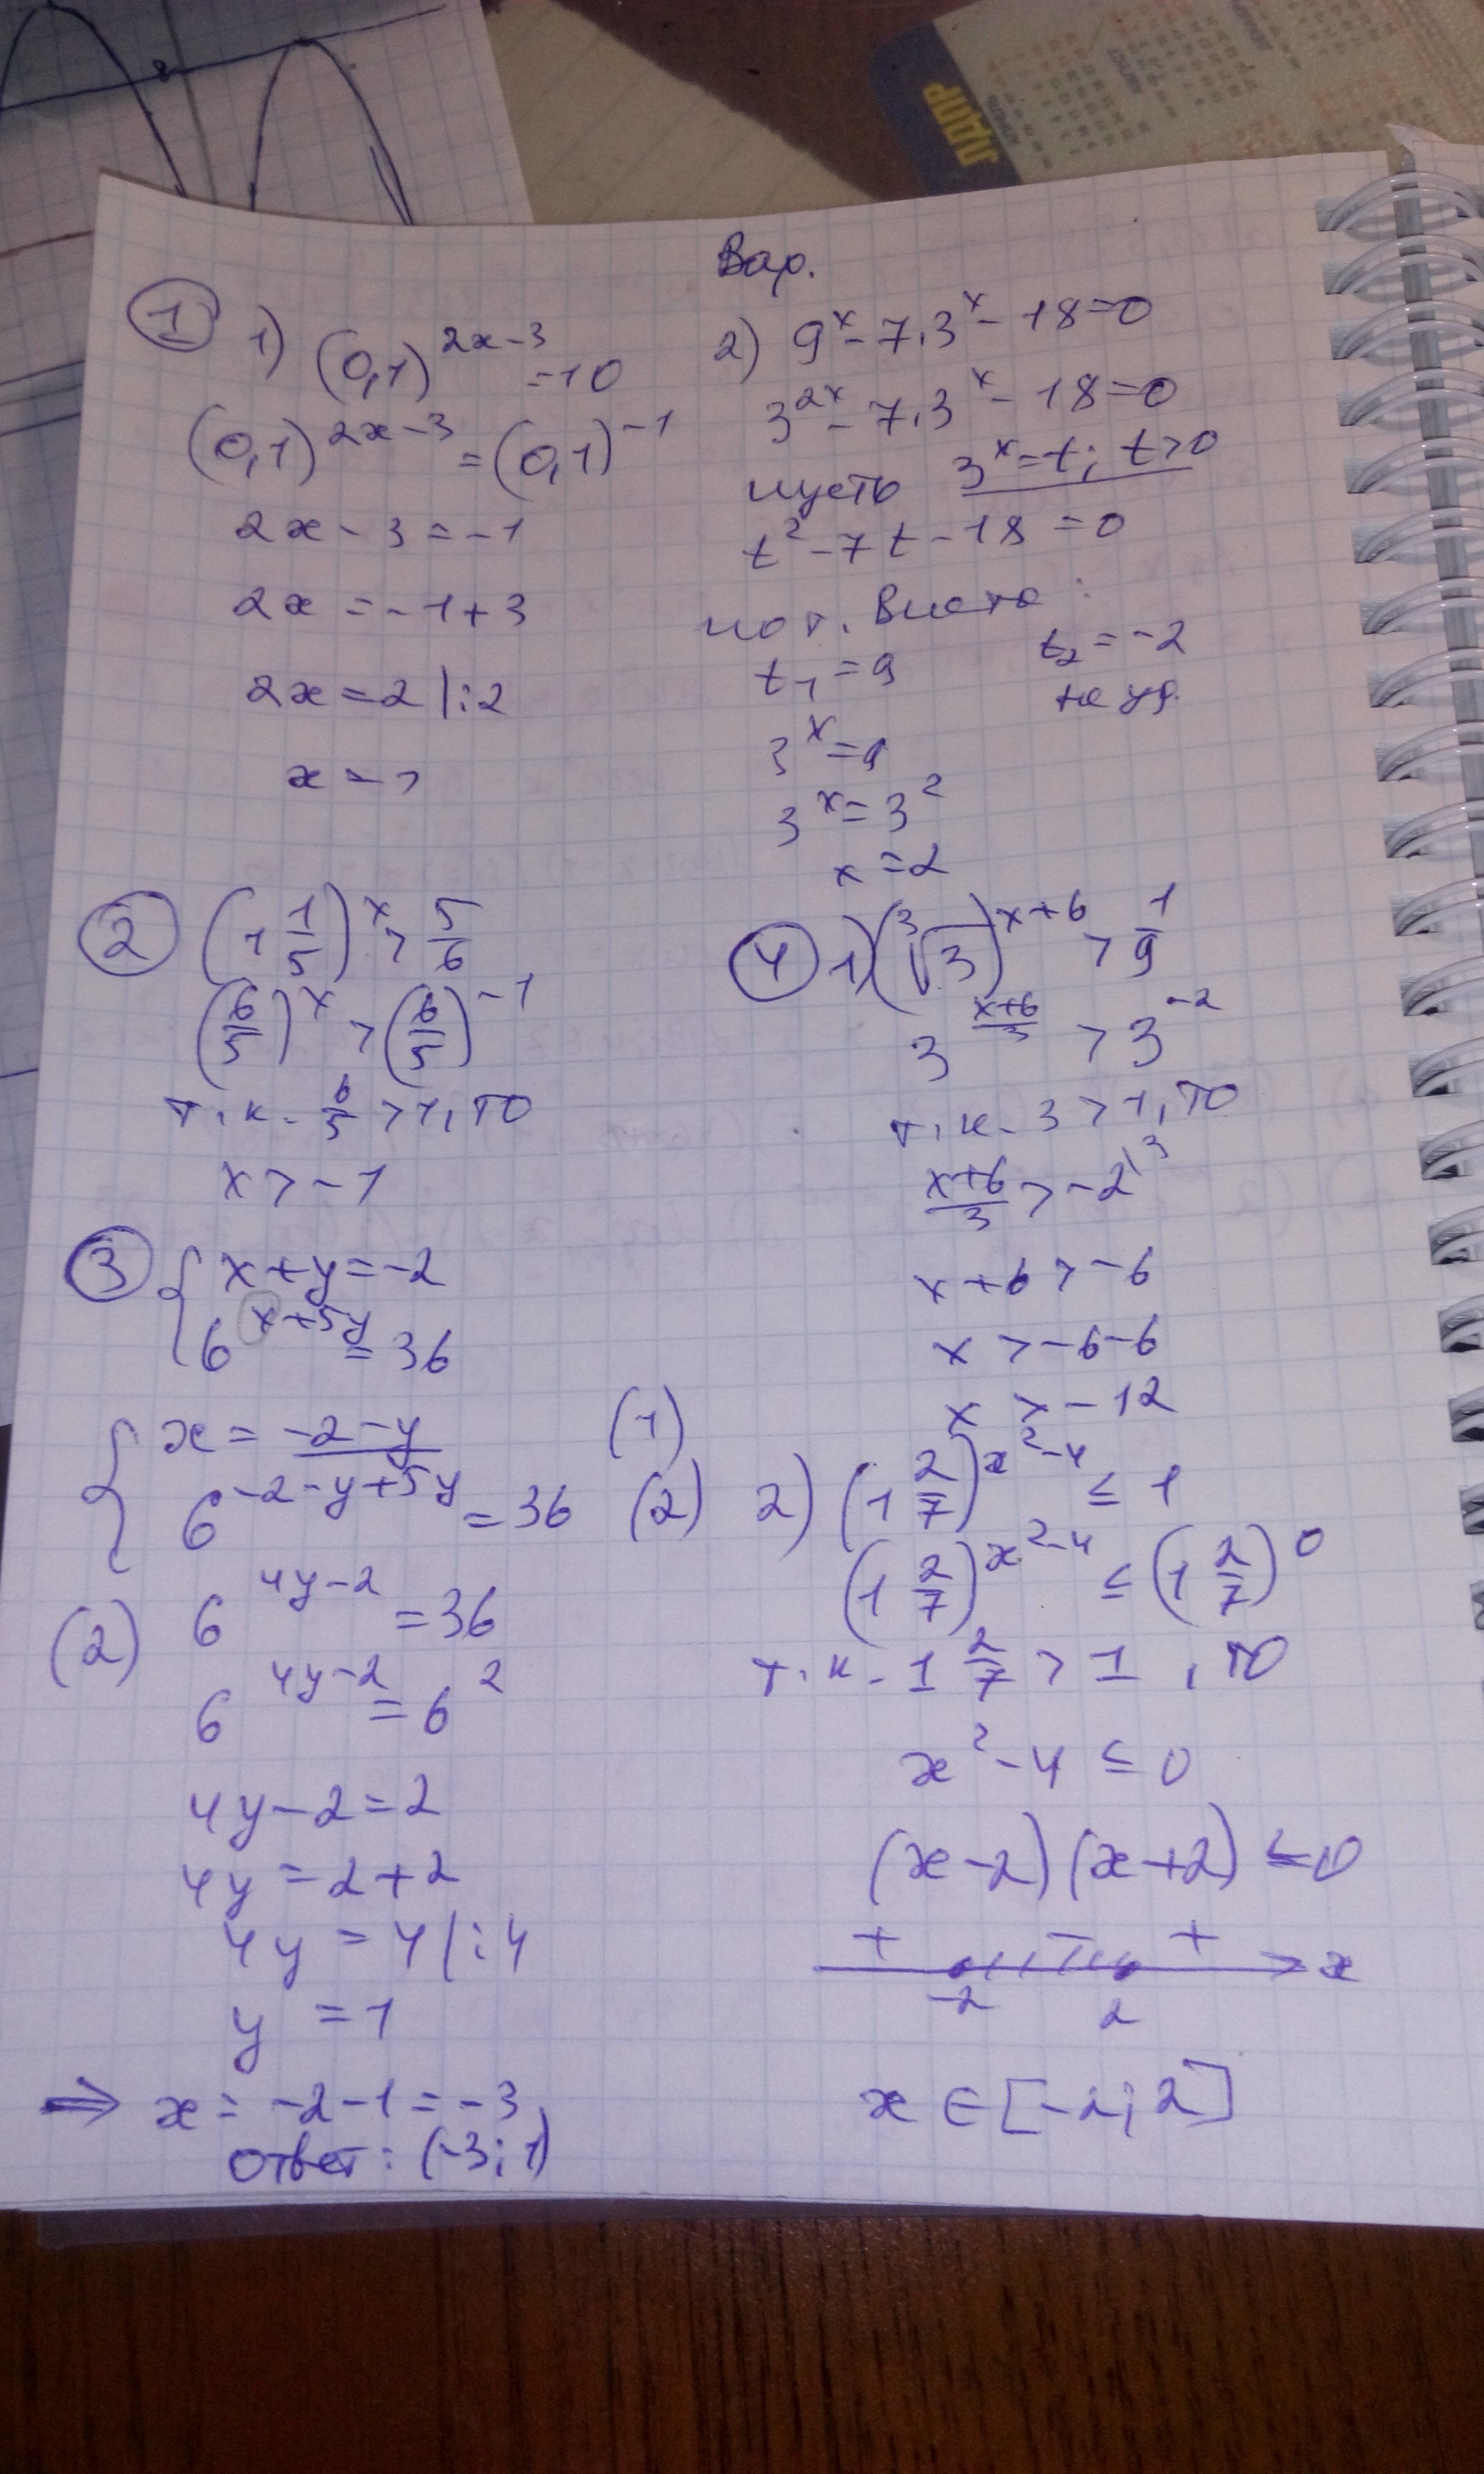 ЛДПР
Вар.
① 1) (0,1)^{2x-3} = 10
(0,1)^{2x-3} = (0,1)^{-1}
2x - 3 = -1
2x = -1 + 3
2x = 2 |:2
2) 9^x - 7·3^x - 18 = 0
3^{2x} - 7·3^x - 18 = 0
пусть 3^x = t; t > 0
t² - 7t - 18 = 0
по т. Виета:
t₁ = 9 t₂ = -2
не уд.
3^x = 9
3^x = 3²
x = 2
② (1 1/5)^x > 5/6
(6/5)^x > (6/5)^{-1}
т.к. 6/5 > 1, то
x > -1
③ { x + y = -2
6^{x+5y} = 36
{ x = -2 - y (1)
6^{-2-y+5y} = 36 (2)
(2) 6^{4y-2} = 36
6^{4y-2} = 6²
4y - 2 = 2
4y = 2 + 2
4y = 4 |:4
y = 1
⇒ x = -2 - 1 = -3
ответ: (-3; 1)
④ 1) (∛3)^{x+6} > 1/9
3^{(x+6)/3} > 3^{-2}
т.к. 3 > 1, то
(x+6)/3 > -2 |·3
x + 6 > -6
x > -6 - 6
x > -12
2) (1 2/7)^{x²-4} ≤ 1
(1 2/7)^{x²-4} ≤ (1 2/7)^0
т.к. 1 2/7 > 1, то
x² - 4 ≤ 0
(x - 2)(x + 2) ≤ 0
+ - + x
-2 2
x ∈ [-2; 2]